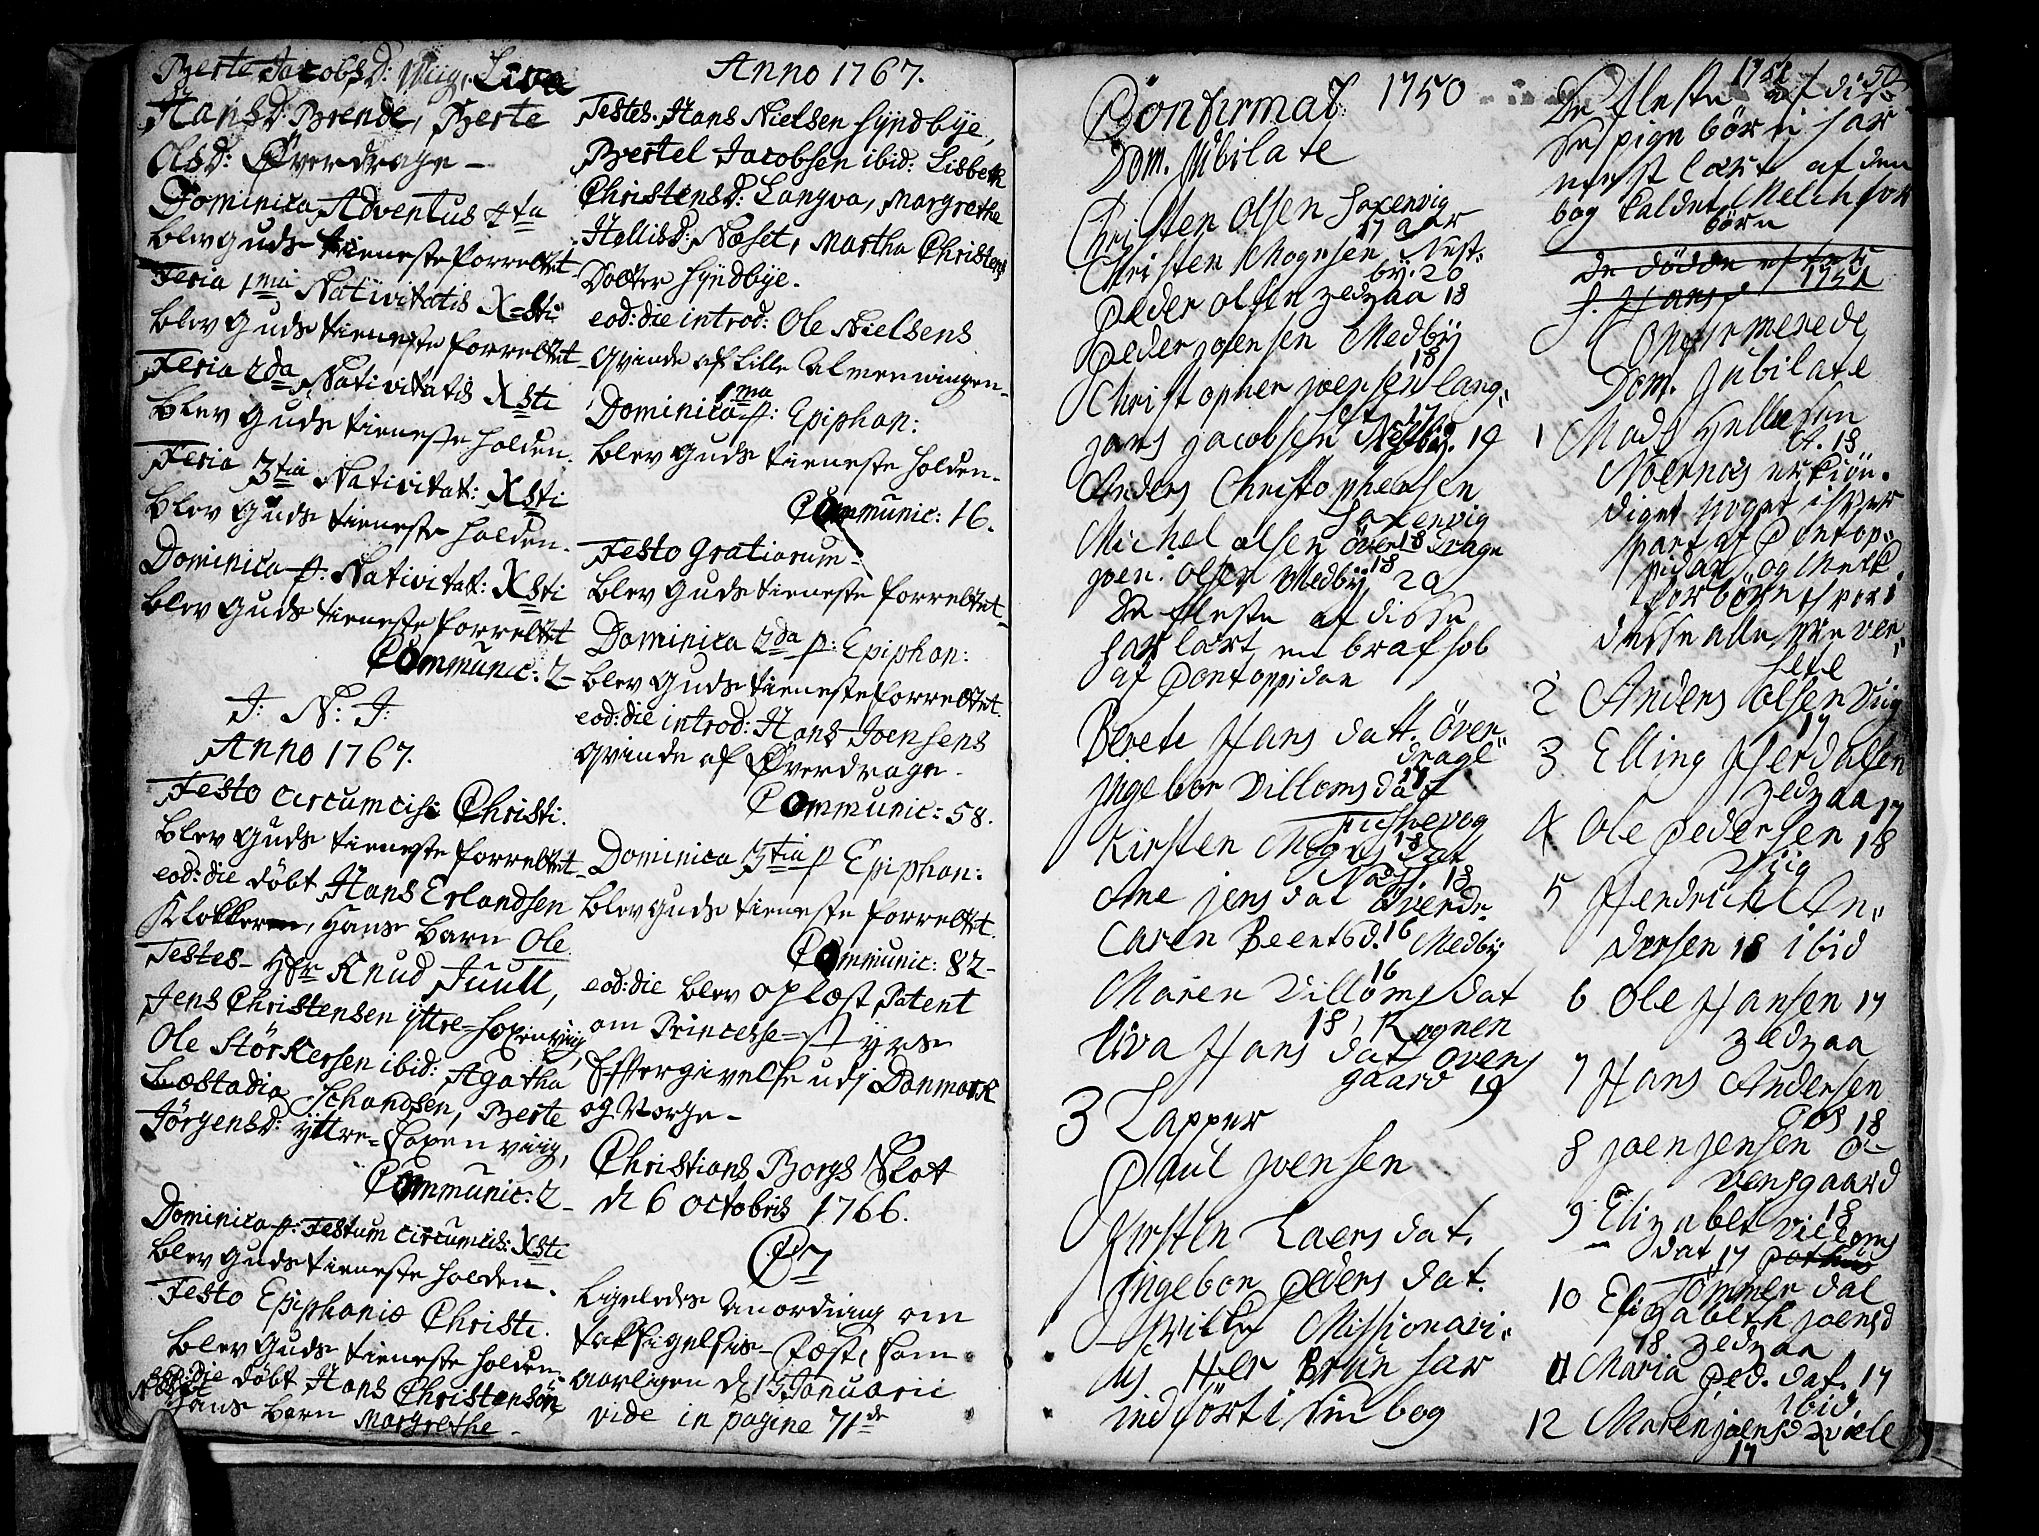 Berte Jacobsd: Viig, Siva
Hansd: Brende, Berte
Olsd: Øverdrage -
Dominica Adventus 4ta
blev Guds tieneste forrettet
Feria 1ma Nativitatis Xsti
blev Guds tieneste forrettet
Feria 2da Nativitatis Xsti
blev Guds tieneste holden.
Feria 3tia Nativitat: Xsti
blev Guds tieneste holden.
Dominica p: Nativitat: Xsti
blev Guds tieneste forrettet
Communic: 2-
J: N: J:
Anno 1767.
Festo circumcisi Christi.
blev Guds tieneste forrettet
eod: die döbt Hans Erlandsen
Klokker, hans barn Ole.
Testes - Hr Knud Juull,
Jens Christensen yttre=Soxenviig,
Ole Störkersen ibid: Agatha
Læstadia Schandsen, Berte
Jörgensd: yttre=Soxenviig,
Communic: 2-
Dominica p: Festum circumcis: Xsti
blev Guds tieneste holden.
Festo Epiphaniæ Christi.
blev Guds tieneste holden.
eod: die döbt Hans Christensön
hans barn Margrethe -
Anno 1767.
Testes. Hans Nielsen Syndbye,
Bertel Jacobsen ibid: Lisbeth
Christensd: Langva, Margrethe
Hellisd: Næset, Martha Christens
Dotter Syndbye.
eod: die introd: Ole Nielsens
Qvinde af Lille Almenningen.
Dominica 1ma p: Epiphan:
blev Guds tieneste holden.
Communic: 16.
Festo Gratiarum.
blev Guds tieneste forrettet.
Dominica 2da p: Epiphan:
blev Guds tieneste forrettet.
eod: die introd: Hans Joensens
Qvinde af Øverdrage.
Communic: 58.
Dominica 3tia p Epiphan:
blev Guds tieneste forrettet.
Communic: 82-
eod: die blev oplæst Patent
om Princesse=Styrs
Eftergivelse udj Danmark
og Norge-
Christians Borgs Slot
d 6 octobris 1766.
C7
Ligeledes Anordning om
taksigelses-Fæst, som
aarligen d Januarii
vide in pagine 71de
Confirmat: 1750
Dom. Jubilate
Christen Olsen Soxenvig
17 aar
Christen Mognsen Nust:
by. 20
Peder olsen Zedzaa 18
Peder joensen Medbÿ
18
Christopher joensen Lang
17
jans jacobsen 19
Anders Christophersen
Soxenvig
Michel olsen över 18 drage
joen olsen Medbÿ 20
De fleste af disse
har lært en braf hob
af Pontoppidan
Berete Hans datt. över
drage
jngebor Villoms dat
Kirsten Mogns dat
18
Ane jens dat överdr.
Caren Beentsd. 16 Medbÿ
16
Maren Villoms dat
18, Rognen
Liva Hans dat ovens
gaard 19
3 Lapper
Paul joensen
Kirsten Laers dat.
Jngebor Peders dat.
hvilke Missionari
us Her Brun har
indfört i sin bog
1751 50
De fleste af dis
se pigebörn har
mest lært af den
bog kaldet Melch for
börn
de dödde efter
1751
Confirmerede
Dom. Jubilate
1 Mads Hellesen
18
Noernæs
diget noget isher
part af Pontop
pidan og Melk
for börn
desse alle
2 Anders olsen Viig
17
3 Elling Perdalsen
Zedzaa 17
4 Ole Pedersen 18
Viig
5 Hendrich An
dersen 18 ibid
6 Ole Hansen 17
Zedzaa
7 Hans Andersen
18
8 joen jensen O
vensgaard
18
9 Elizabet Villoms
dat 17
Tömmerdal
10 Elizabeth joensd
18 Zedzaa
11 Maria Ped. dat. 17
ibid
12 Maren joensd Qvæle
17